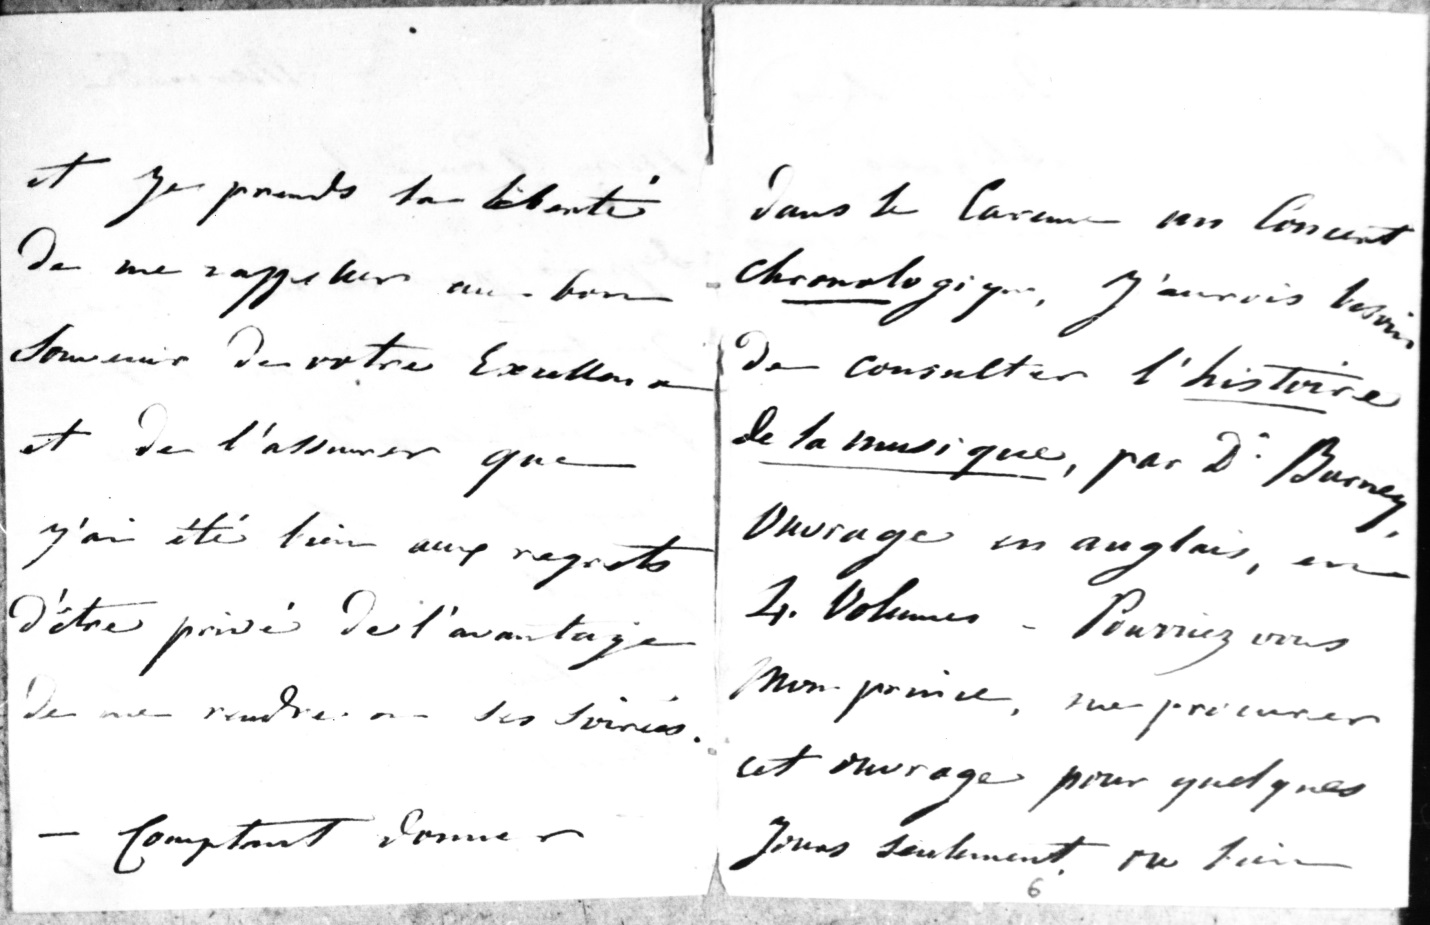 et je prends la liberté
de me rappeller au bon
Souvenir de votre Excellence
et de l'assurer que
j'ai été bien aux regrets
d'être privé de l'avantage
de me rendre a ses soirées.
— Comptant donner
dans le Careme un Concert
chronologique, j'aurois besoin
de consulter l'histoire
de la musique, par Dr. Burney,
Ouvrage en anglais, en
4. Volumes - Pourriez vous
Mon prince, me procurer
cet ouvrage pour quelques
Jours seulement, ou bien
6